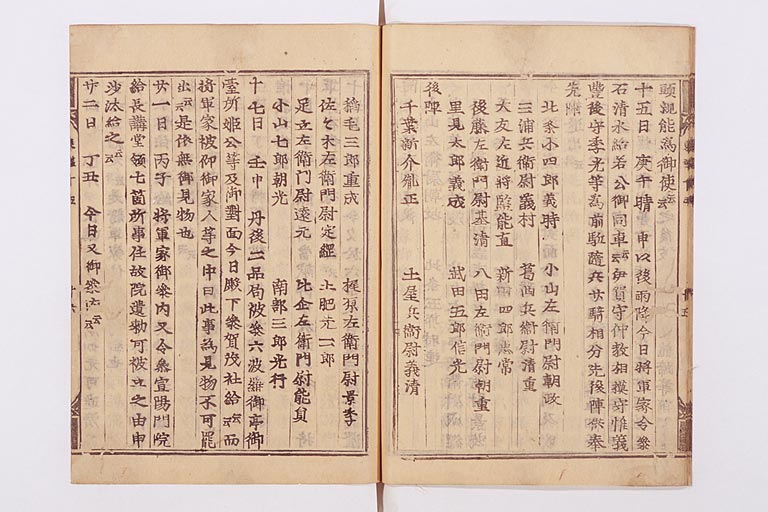 頭親能為御使云云
十五日 庚午晴 申以後雨降今日將軍家令參
石清水給若公御同車云云伊賀守仲教相摸守惟義
豊後守季光等為前駈隨兵廿騎相分先後陣供奉
先陣
北條小四郎義時 小山左衛門尉朝政
三浦兵衛尉義村 葛西兵衛尉清重
大友左近將監能直 新田四郎忠常
後藤左衛門尉基清 八田左衛門尉朝重
里見太郎義成 武田五郎信光
後陣
千葉新介胤正 土屋兵衛尉義清
梶原左衛門尉景季
佐々木左衛門尉定綱 土肥先二郎
足立左衛門尉遠元 比企左衛門尉能員
小山七郎朝光 南部三郎光行
十七日 壬申 丹後二品局被參六波羅御亭御
臺所姬公等及御對面今日殿下參賀茂社給云云而
將軍家被仰御家人等之中曰此事為見物不可罷
出云云是依無御見物也
廿一日 丙子 將軍家御參內又令參宣陽門院
給長講堂領七箇所事任故院遺勅可被此之由申
沙汰給之云云
廿二日 丁丑 今日又御參內云云